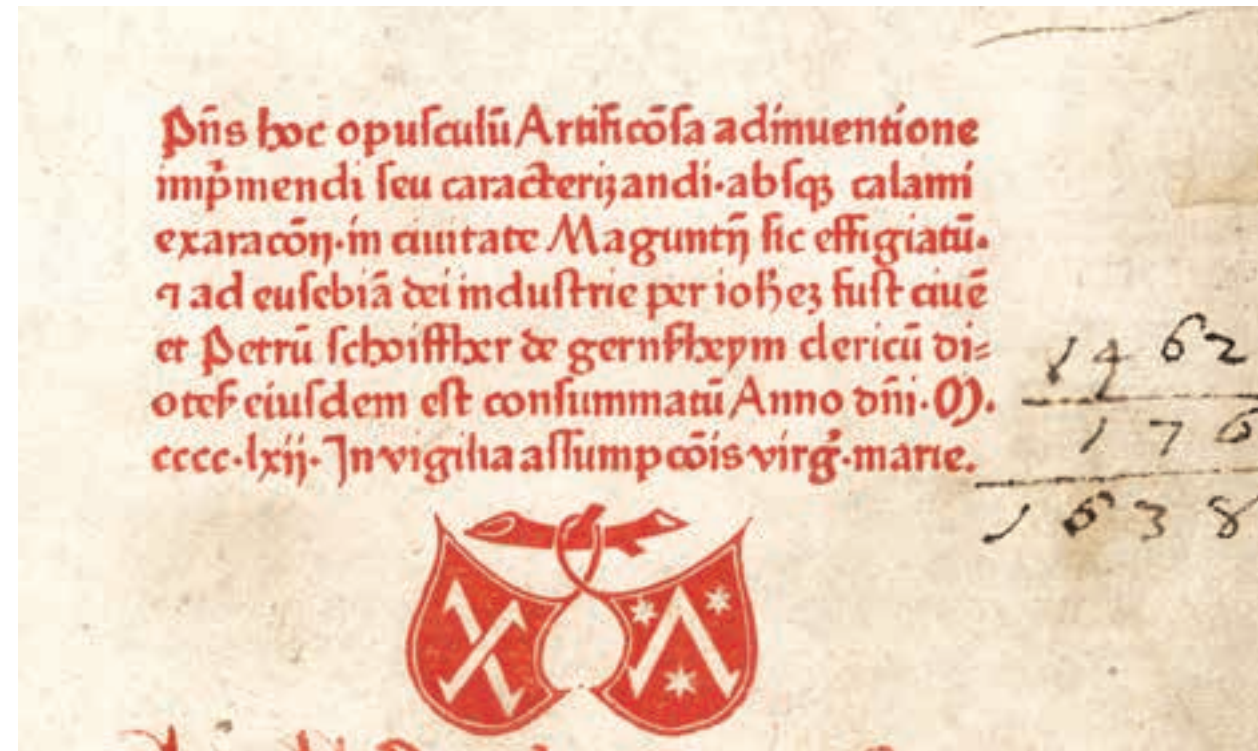 Pñs hoc opuſculū Artificōſa adinuentione
imp̄mendi ſeu caracteriʒandi·abſqꝫ calami
exaracōn̄·in ciuitate Magunt̄ij ſic effigiatū·
⁊ ad euſebiā dei induſtrie per ioh̄eʒ fuſt ciuē
et Petrū ſchoiffher de gernſheym clericū di⸗
oteẜ eiuſdem eſt conſummatū Anno dn̄i·M·
cccc·lxij·In vigilia aſſumpcōis virḡ·marie.
1462
176
1638